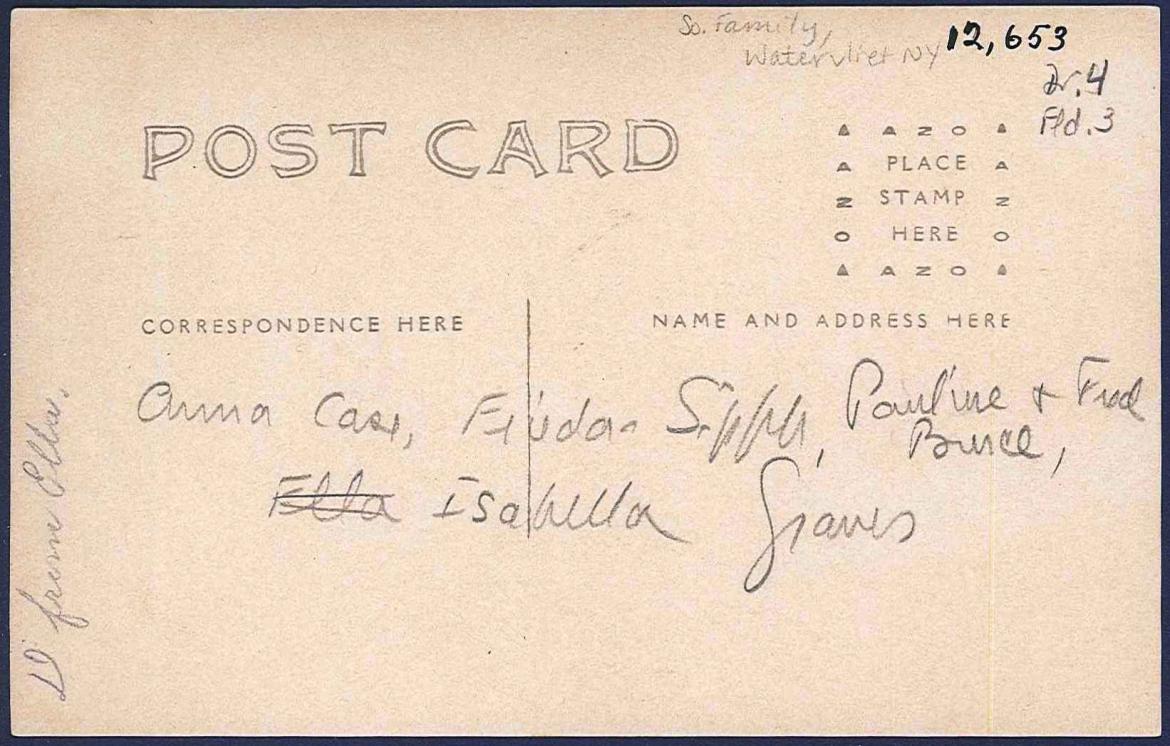 So. Family,
Watervliet NY
12,653
Dr. 4
Fld. 3
POST CARD
AZO
PLACE
STAMP
HERE
AZO
CORRESPONDENCE HERE
NAME AND ADDRESS HERE
Anna Case, Frieda Sipple, Pauline & Fred
Bruce,
Ella Isabella Graves
from Ella.